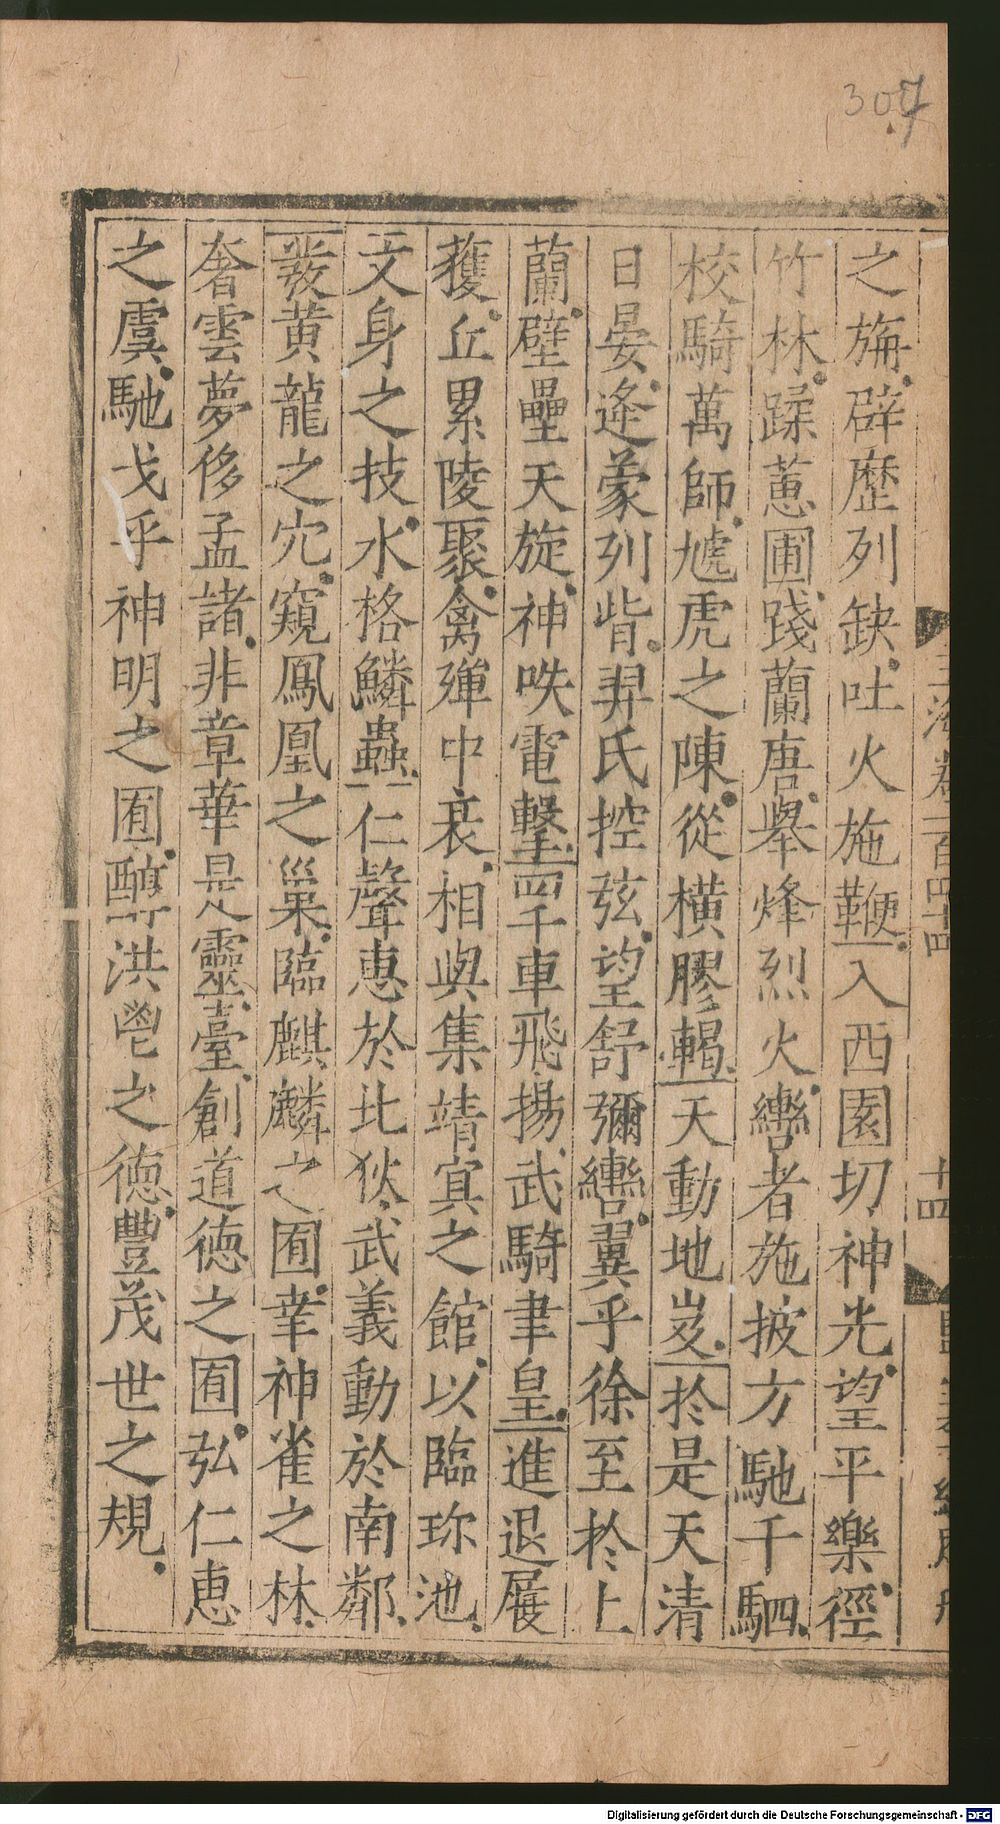 307
之旃辟歷列缺吐火施鞭入西園切神光望平樂徑
竹林蹂蕙圃踐蘭唐舉烽烈火轡者施披方馳千駟
校騎萬師虓虎之陳從橫膠轕天動地岌於是天清
日晏逄蒙列眥羿氏控弦望舒彌轡翼乎徐至於上
蘭壁壘天旋神呹電擊四千車飛揚武騎聿皇進退展
獲丘累陵聚禽殫中衰相與集靖㝠之館以臨珎池
文身之技水格鱗蟲仁聲惠於北狄武義動於南鄰
𤼲黄龍之穴窺鳳凰之巢臨麒麟之囿幸神雀之林
奢雲夢侈孟諸非章華是靈臺創道德之囿弘仁惠
之虞馳弋乎神明之囿醇洪鬯之德豐茂世之規
卷二百四十四
十四
Digitalisierung gefördert durch die Deutsche Forschungsgemeinschaft - DFG